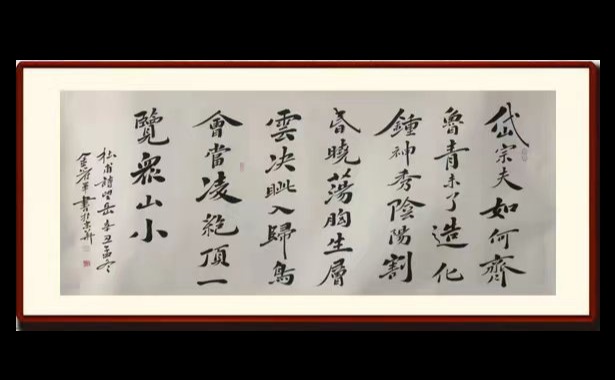 岱宗夫如何齊
魯青未了造化
鍾神秀陰陽割
昏曉蕩胸生層
雲決眦入歸鳥
會當凌絕頂一
覽眾山小
杜甫詩望岳辛丑孟冬
書於